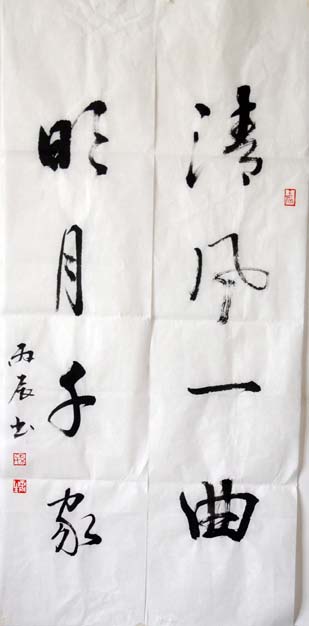 清风一曲
明月千家
丙辰书